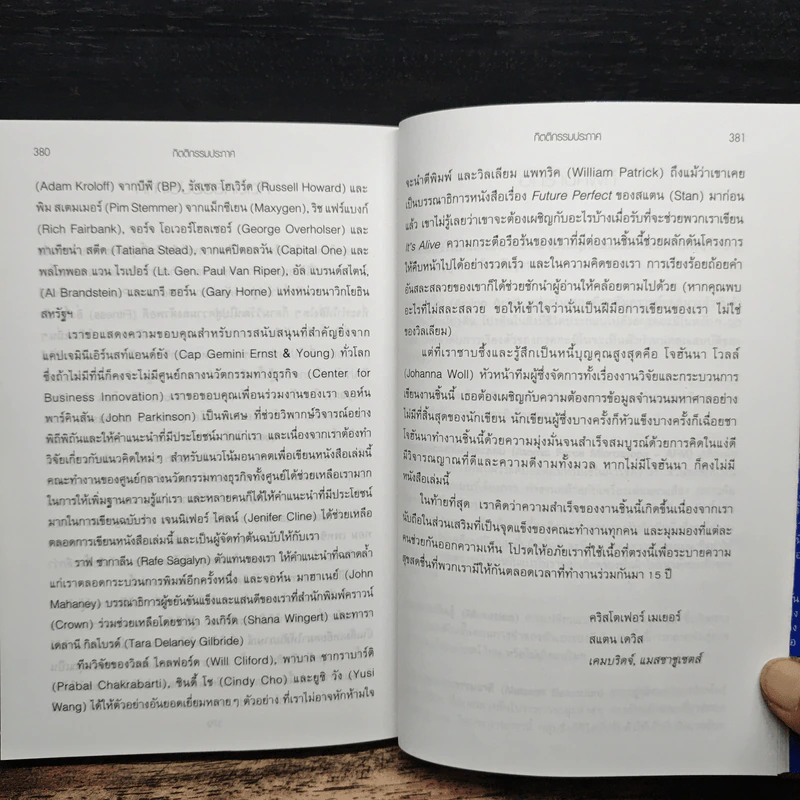 380
กิตติกรรมประกาศ
(Adam Kroloff) จากบีพี (BP), รัสเซล โฮเวิร์ด (Russell Howard) และ
พิม สเตมเมอร์ (Pim Stemmer) จากแม็กซีเยน (Maxygen), ริช แฟร์แบงก์
(Rich Fairbank), จอร์จ โอเวอร์โฮลเซอร์ (George Overholser) และ
ทาเทียน่า สตีด (Tatiana Stead), จากแคปิตอลวัน (Capital One) และ
พลโทพอล แวน ไรเปอร์ (Lt. Gen. Paul Van Riper), อัล แบรนด์สไตน์,
(Al Brandstein) และแกรี ฮอร์น (Gary Horne) แห่งหน่วยนาวิกโยธิน
สหรัฐฯ
เราขอแสดงความขอบคุณสำหรับการสนับสนุนที่สำคัญยิ่งจาก
แคปเจมินีเอิร์นสท์แอนด์ยัง (Cap Gemini Ernst & Young) ทั่วโลก
ซึ่งถ้าไม่มีที่นี่ก็คงจะไม่มีศูนย์กลางนวัตกรรมทางธุรกิจ (Center for
Business Innovation) เราขอขอบคุณเพื่อนร่วมงานของเรา จอห์น
พาร์คินสัน (John Parkinson) เป็นพิเศษ ที่ช่วยวิพากษ์วิจารณ์อย่าง
พิถีพิถันและให้คำแนะนำที่มีประโยชน์มากแก่เรา และเนื่องจากเราต้องทำ
วิจัยเกี่ยวกับแนวคิดใหม่ๆ สำหรับแนวโน้มอนาคตเพื่อเขียนหนังสือเล่มนี้
คณะทำงานของศูนย์กลางนวัตกรรมทางธุรกิจทั้งศูนย์ได้ช่วยเหลือเรามาก
ในการให้เพิ่มฐานความรู้แก่เรา และหลายคนก็ได้ให้คำแนะนำที่มีประโยชน์
มากในการเขียนฉบับร่าง เจนนิเฟอร์ ไคลน์ (Jenifer Cline) ได้ช่วยเหลือ
ตลอดการเขียนหนังสือเล่มนี้ และเป็นผู้จัดทำต้นฉบับให้กับเรา
ราฟ ซากาลีน (Rafe Sagalyn) ตัวแทนของเรา ให้คำแนะนำที่ฉลาดล้ำ
แก่เราตลอดกระบวนการพิมพ์อีกครั้งหนึ่ง และจอห์น มาฮาเนย์ (John
Mahaney) บรรณาธิการผู้ขยันขันแข็งและแสนดีของเราที่สำนักพิมพ์คราวน์
(Crown) ร่วมช่วยเหลือโดยชานา วิงเกิร์ต (Shana Wingert) และทารา
เดลานี กิลไบรด์ (Tara Delaney Gilbride)
ทีมวิจัยของวิลล์ ไคลฟอร์ด (Will Cliford), พาบาล ชากราบาร์ติ
(Prabal Chakrabarti), ซินดี้ โช (Cindy Cho) และยูซิ วัง (Yusi
Wang) ได้ให้ตัวอย่างอันยอดเยี่ยมหลายๆ ตัวอย่าง ที่เราไม่อาจหักห้ามใจ
กิตติกรรมประกาศ
381
จะนำตีพิมพ์ และวิลเลียม แพทริค (William Patrick) ถึงแม้ว่าเขาเคย
เป็นบรรณาธิการหนังสือเรื่อง Future Perfect ของสแตน (Stan) มาก่อน
แล้ว เขาไม่รู้เลยว่าเขาจะต้องเผชิญกับอะไรบ้างเมื่อรับที่จะช่วยพวกเราเขียน
It's Alive ความกระตือรือร้นของเขาที่มีต่องานชิ้นนี้ช่วยผลักดันโครงการ
ให้คืบหน้าไปได้อย่างรวดเร็ว และในความคิดของเรา การเรียงร้อยถ้อยคำ
อันสละสลวยของเขาก็ได้ช่วยชักนำผู้อ่านให้คล้อยตามไปด้วย (หากคุณพบ
อะไรที่ไม่สละสลวย ขอให้เข้าใจว่านั่นเป็นฝีมือการเขียนของเรา ไม่ใช่
ของวิลเลียม)
แต่ที่เราซาบซึ้งและรู้สึกเป็นหนี้บุญคุณสูงสุดคือ โจฮันนา โวลล์
(Johanna Woll) หัวหน้าทีมผู้ซึ่งจัดการทั้งเรื่องงานวิจัยและกระบวนการ
เขียนงานชิ้นนี้ เธอต้องเผชิญกับความต้องการข้อมูลจำนวนมหาศาลอย่าง
ไม่มีที่สิ้นสุดของนักเขียน นักเขียนผู้ซึ่งบางครั้งก็หัวแข็งบางครั้งก็เฉื่อยชา
โจฮันนาทำงานชิ้นนี้ด้วยความมุ่งมั่นจนสำเร็จสมบูรณ์ด้วยการคิดในแง่ดี
มีวิจารณญาณที่ดีและความดีงามทั้งมวล หากไม่มีโจฮันนา ก็คงไม่มี
หนังสือเล่มนี้
ในท้ายที่สุด เราคิดว่าความสำเร็จของงานชิ้นนี้เกิดขึ้นเนื่องจากเรา
นับถือในส่วนเสริมที่เป็นจุดแข็งของคณะทำงานทุกคน และมุมมองที่แต่ละ
คนช่วยกันออกความเห็น โปรดให้อภัยเราที่ใช้เนื้อที่ตรงนี้เพื่อระบายความ
สุขสดชื่นที่พวกเรามีให้กันตลอดเวลาที่ทำงานร่วมกันมา 15 ปี
คริสโตเฟอร์ เมเยอร์
สแตน เดวิส
เคมบริดจ์, แมสซาชูเซตส์